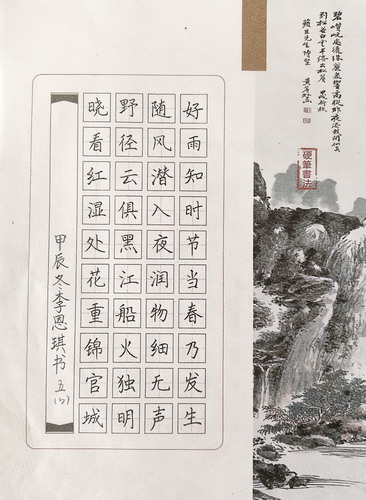 好雨知时节当春乃发生
随风潜入夜润物细无声
野径云俱黑江船火独明
晓看红湿处花重锦官城
甲辰冬李恩琪书 五
硬筆書法